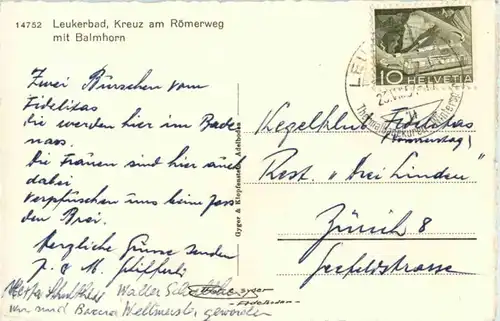 14752 Leukerbad, Kreuz am Römerweg
mit Balmhorn
10 HELVETIA
Zwei Burschen vom
Fidelitas
die werden hier im Bade
nass.
die Frauen sind hier auch
dabei
verpfuschen uns keine den Brei.
Herzliche Grüsse senden
J. & M. Pfifferli
Walter
wir sind Weltmeister geworden
Gyger & Klopfenstein, Adelboden
gyger
Adelboden
Kegelklub Fidelitas
(Donnerstag)
Rest. "Drei Linden"
Zürich 8
Seefeldstrasse